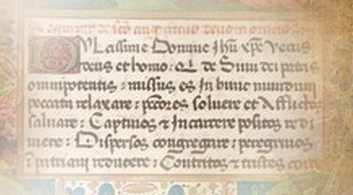 de sco augustino
Dulcissime Domine Ihu xpe verus
deus et homo: Qui de sinu dei patris
omnipotentis: missus es In hunc mundum
peccata relaxare: pctores soluere et Afflictos
saluare: Captiuos et Incarcere positos redi
mere: Dispersos congregare: peregrinos
patriam reducere: Contritos et tristes